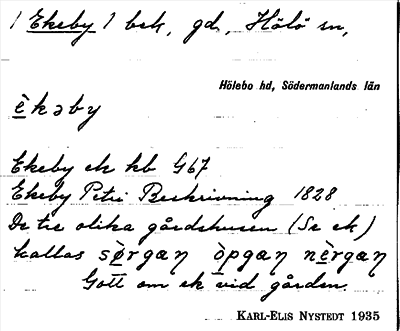 1 Ekeby 1 bsk, gd, Hölö sn,
Hölebo hd, Södermanlands län
èkəby
Ekeby ek kb G67
Ekeby Petri Beskrivning 1828
De tre olika gårdshusen (Se ek)
kallas sø̀rgæɳ òpgæɳ nèrgæɳ
Gott om ek vid gården.
KARL-ELIS NYSTEDT 1935